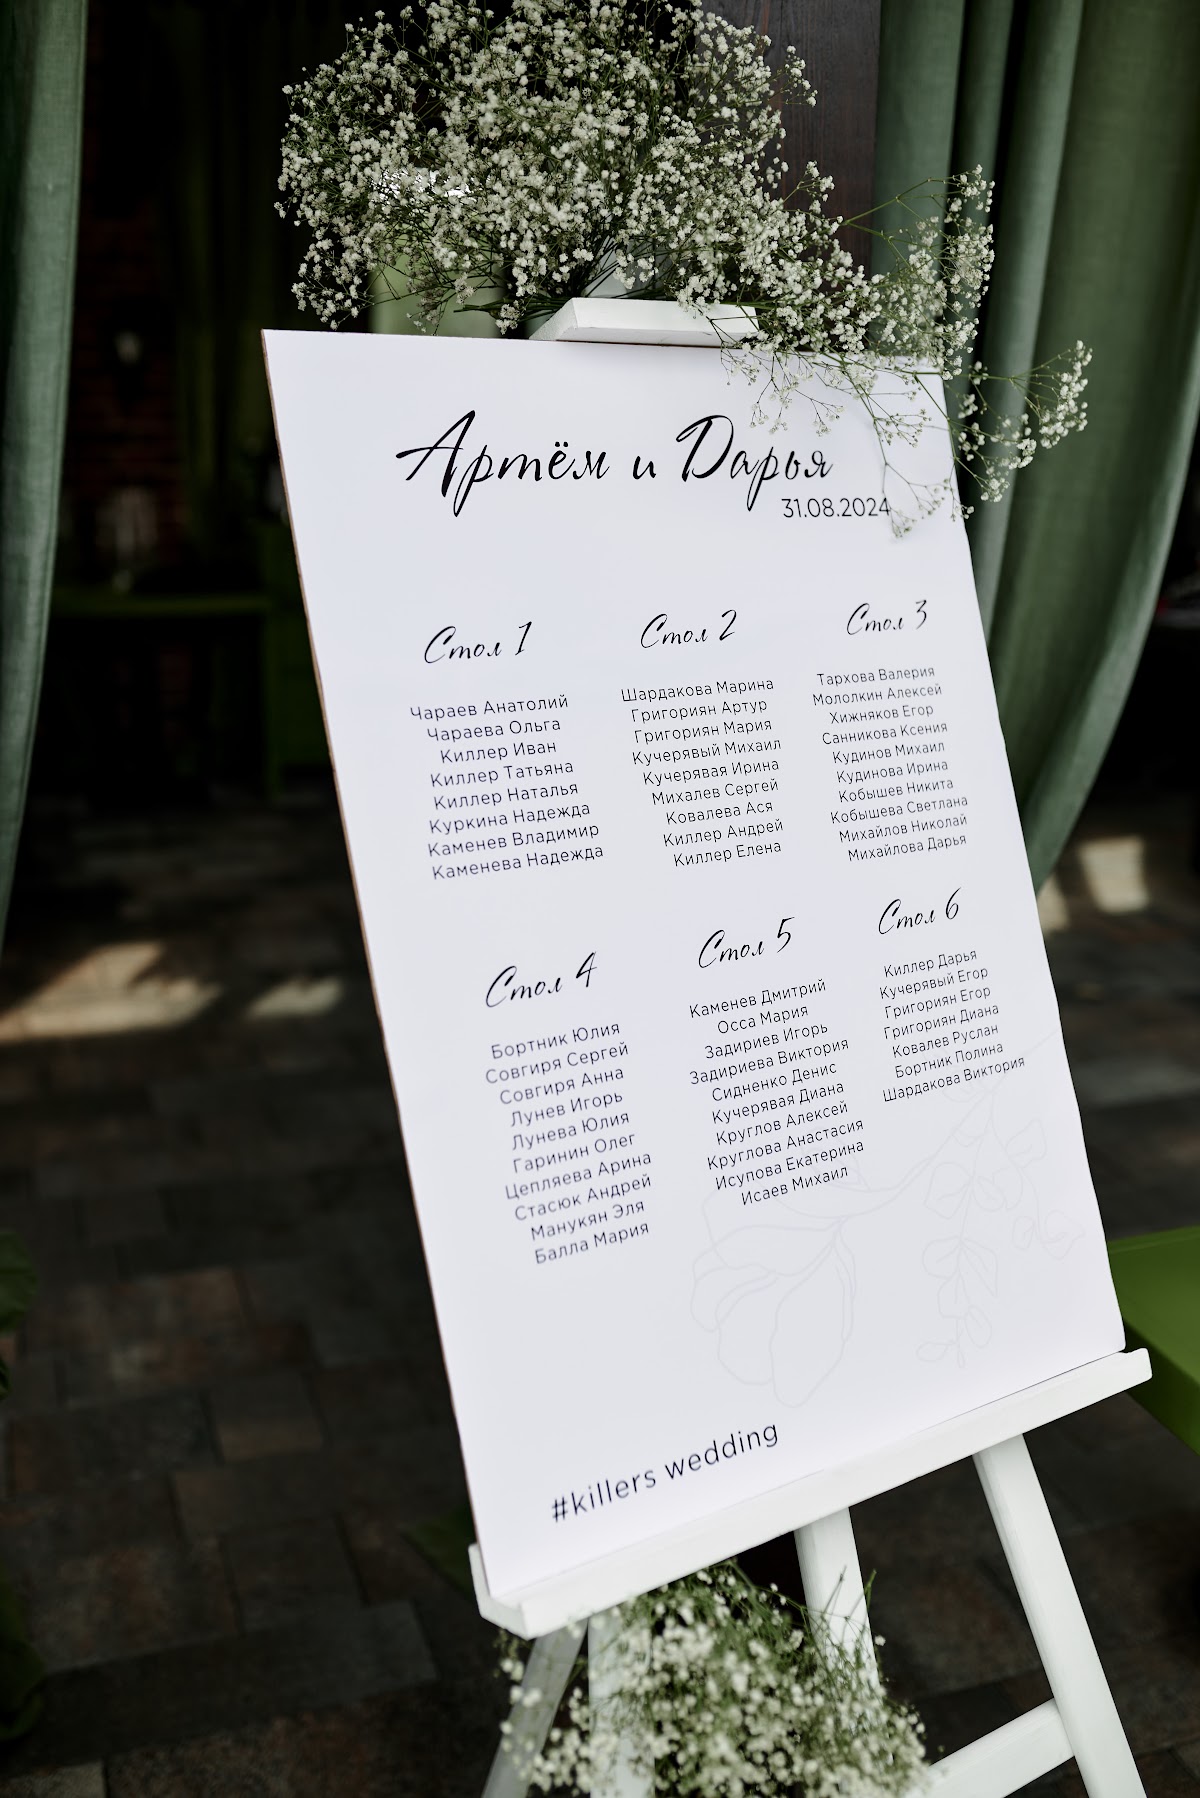 Артём и Дарья
31.08.2024
Стол 1
Чараев Анатолий
Чараева Ольга
Киллер Иван
Киллер Татьяна
Киллер Наталья
Куркина Надежда
Каменев Владимир
Каменева Надежда
Стол 2
Шардакова Марина
Григориян Артур
Григориян Мария
Кучерявый Михаил
Кучерявая Ирина
Михалев Сергей
Ковалева Ася
Киллер Андрей
Киллер Елена
Стол 3
Тархова Валерия
Мололкин Алексей
Хижняков Егор
Санникова Ксения
Кудинов Михаил
Кудинова Ирина
Кобышев Никита
Кобышева Светлана
Михайлов Николай
Михайлова Дарья
Стол 4
Бортник Юлия
Совгиря Сергей
Совгиря Анна
Лунев Игорь
Лунева Юлия
Гаринин Олег
Цепляева Арина
Стасюк Андрей
Манукян Эля
Балла Мария
Стол 5
Каменев Дмитрий
Осса Мария
Задириев Игорь
Задириева Виктория
Сидненко Денис
Кучерявая Диана
Круглов Алексей
Круглова Анастасия
Исупова Екатерина
Исаев Михаил
Стол 6
Киллер Дарья
Кучерявый Егор
Григориян Егор
Григориян Диана
Ковалев Руслан
Бортник Полина
Шардакова Виктория
#killers wedding